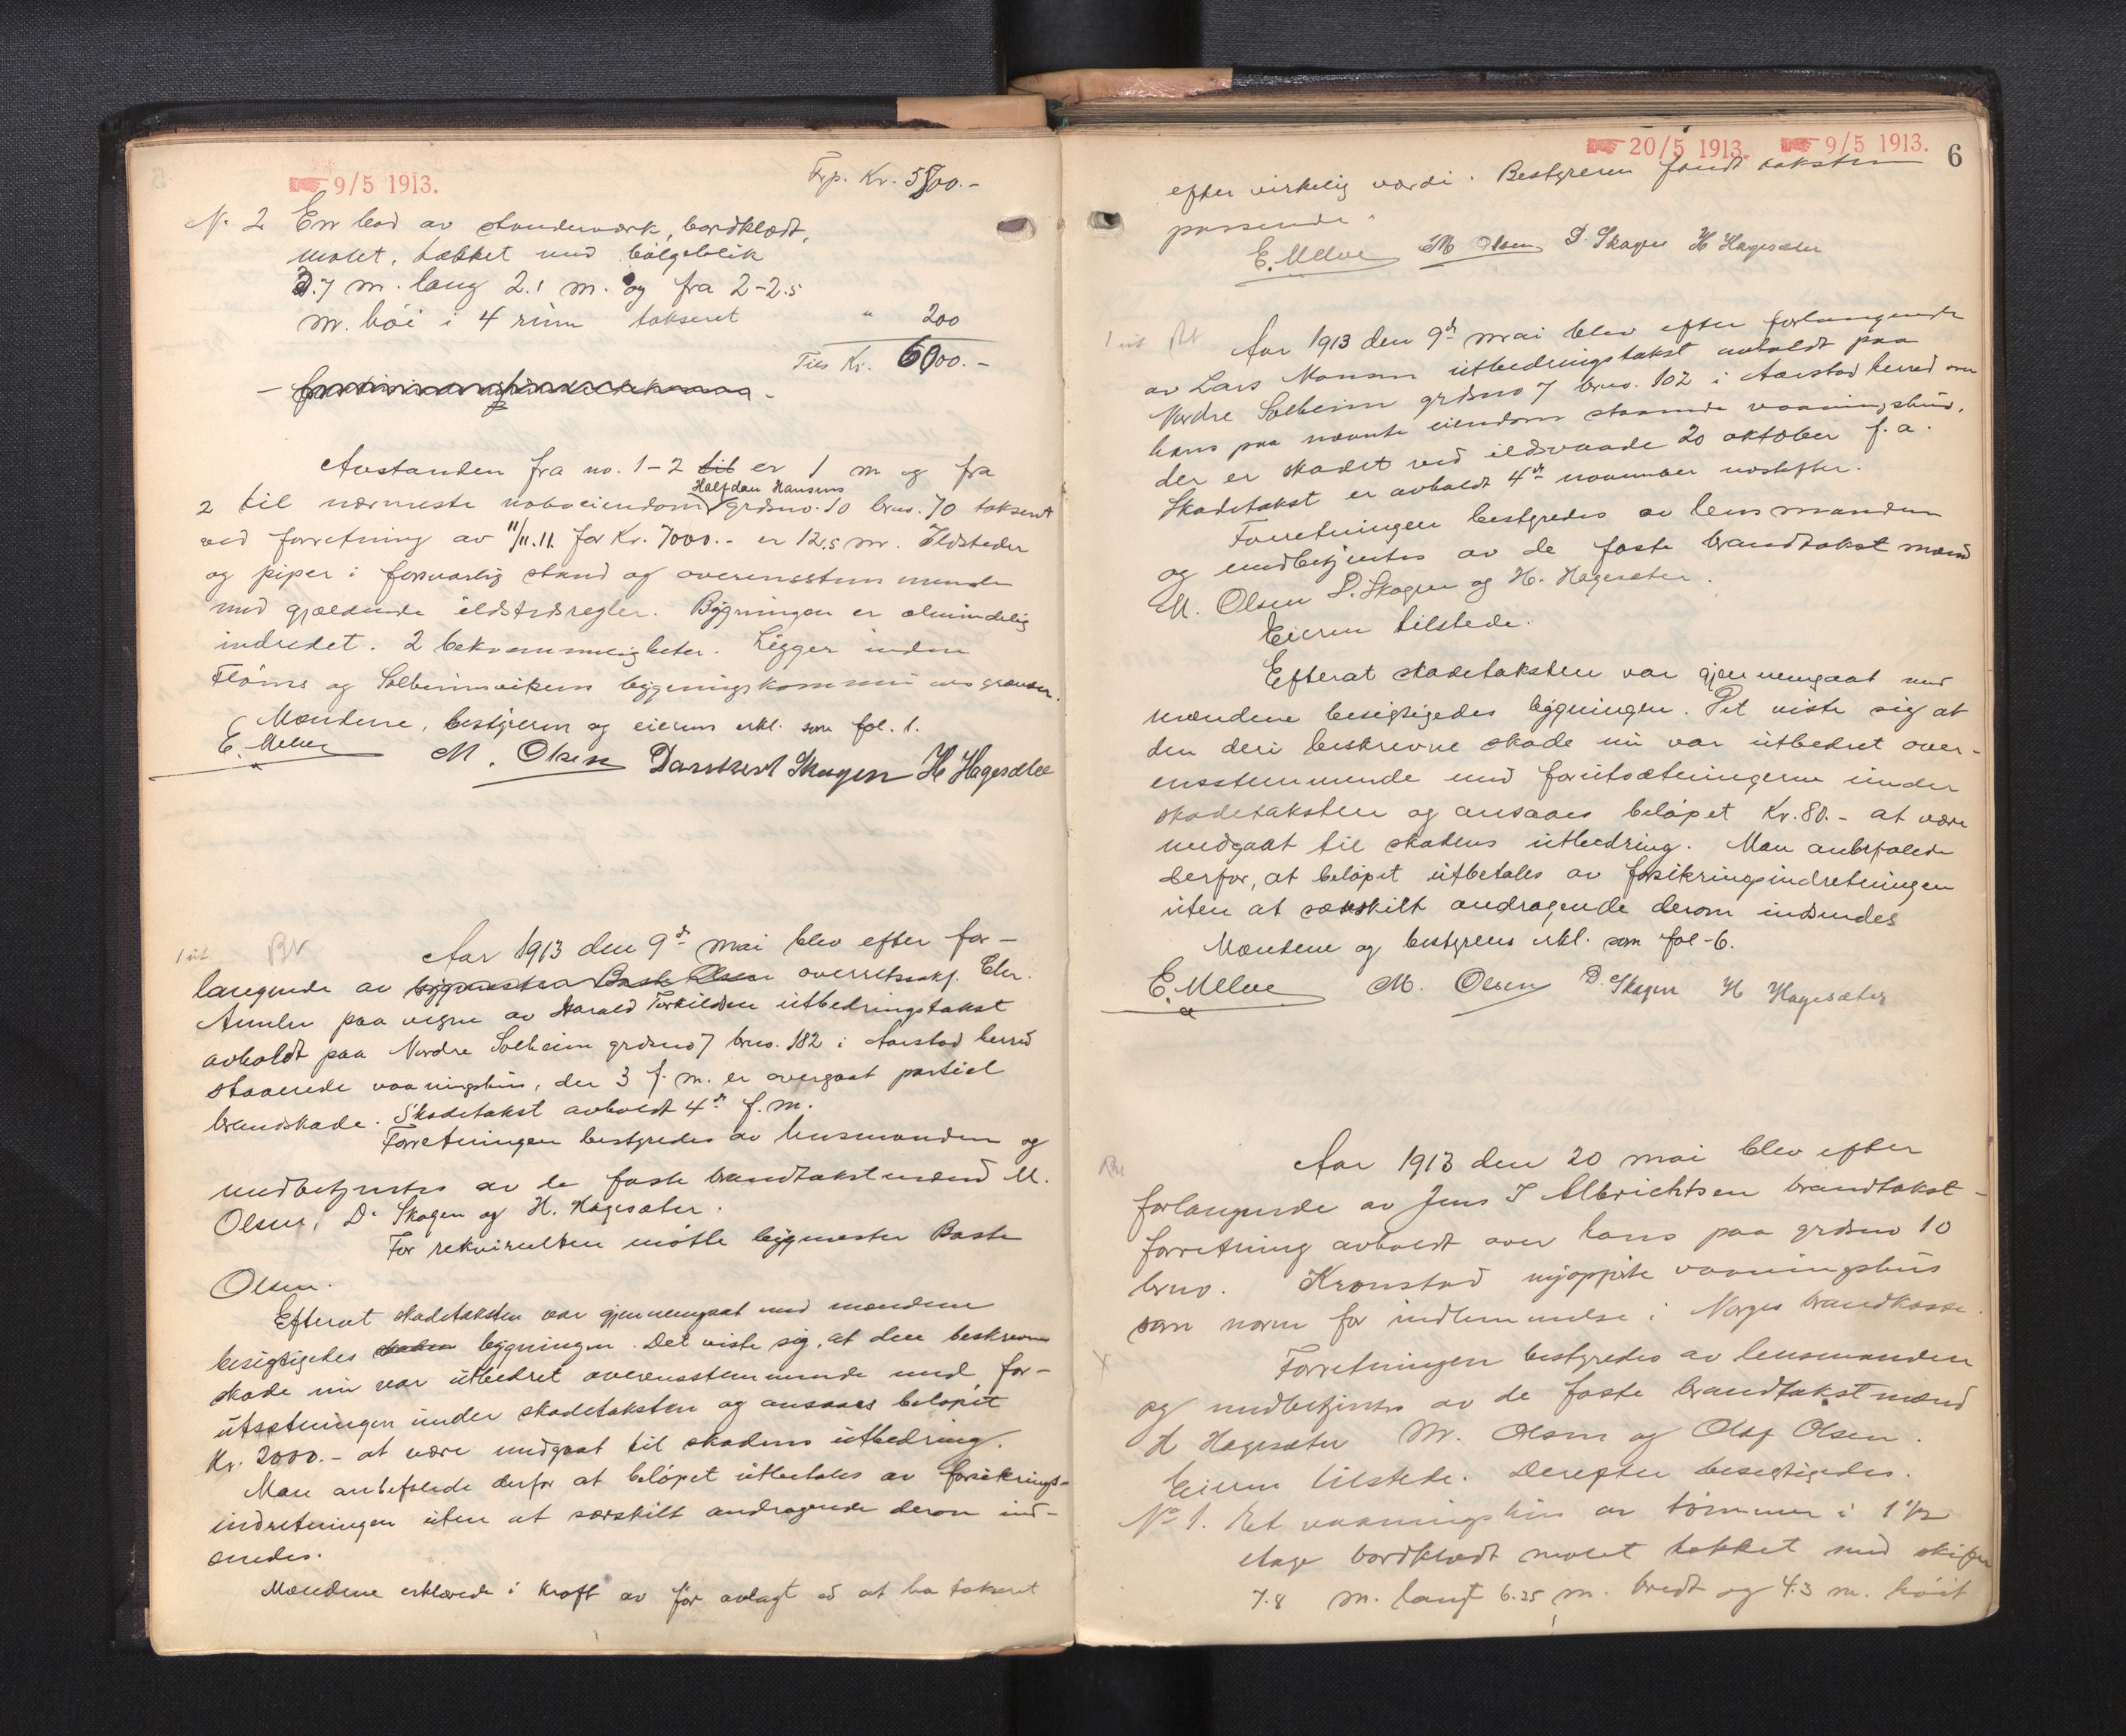 9/5 1913.
Trp. Kr. 5800.-
No 2 En bod av standerverk, bordklædt,
malet, tækket med bølgeblik
3.7 m. lang 2.1 m. og fra 2-2.5
m. høi i 4 rum takseret " 200
Tils Kr. 6000.-
Avstanden fra no. 1-2 til er 1 m og fra
2 til nærmeste naboeiendom Halfdan Hansens grdsno. 10 brno. 70 takseret
ved forretning av 11/11.11. for Kr. 7000.- er 12.5 m. Ildsteder
og piper i forsvarlig stand og overensstemmende
med gjældende ildstedsregler. Bygningen er almindelig
indredet. 2 bekvemmeligheter. Ligger inden
Fløens og Solheimsvikens bygningskommunes grænser.
Mændene, bestyreren og eierens erkl. som fol. 1.
E. Melve M. Olsen Danckert Skagen H Hagesæter
1 ut BN Aar 1913 den 9de mai blev efter for-
langende av bygmester Baste Olsen overretssakf. Chr.
paa vegne av Harald Torkildsen utbedringstakst
avholdt paa Nordre Solheim grdsno 7 brno. 182 i Aarstad herred
staaende vaaningshus, der 3 f. m. er overgaat partiel
brandskade. Skadetakst avholdt 4de f. m.
Forretningen bestyredes av lensmanden og
medbetjentes av de faste brandtakstmænd M.
Olsen, D. Skagen og H. Hagesæter.
For rekvirenten møtte bygmester Baste
Olsen.
Efterat skadetaksten var gjennemgaat med mændene
besigtigedes bygningen. Det viste sig, at den beskrevne
skade nu var utbedret overensstemmende med for-
utsetningen under skadetaksten og ansaaes beløpet
Kr. 2000.- at være medgaat til skadens utbedring.
Man anbefalede derfor at beløpet utbetales av forsikrings-
indretningen uten at særskilt andragende derom ind-
sendes.
Mændene erklærede i kraft av før avlagt ed at ha takseret
20/5 1913. 9/5 1913. 6
efter virkelig værdi. Bestyreren fandt taksten
passende.
E. Melve M Olsen D. Skagen H Hagesæter
1 ut Aar 1913 den 9de mai blev efter forlangende
av Lars Monsen utbedringstakst avholdt paa
Nordre Solheim grdsno 7 brno. 102 i Aarstad herred over
hans paa nævnte eiendom staaende vaaningshus,
der er skadet ved ildsvaade 20 oktober f. a.
Skadetakst er avholdt 4de november næstefter.
Forretningen bestyredes av lensmanden
og medbetjentes av de faste brandtakstmænd
M. Olsen D. Skagen og H. Hagesæter.
Eieren tilstede.
Efterat skadetaksten var gjennemgaat med
mændene besigtigedes bygningen. Det viste sig at
den deri beskrevne skade nu var utbedret over-
ensstemmende med forutsætningerne under
skadetaksten og ansaaes beløpet Kr. 80.- at være
medgaat til skadens utbedring. Man anbefalede
derfor, at beløpet utbetales av forsikringsindretningen
uten at særskilt andragende derom indsendes
Mændene og bestyrens erkl. som fol-6.
E. Melve M. Olsen D. Skagen H Hagesæter
Aar 1913 den 20 mai blev efter
forlangende av Jens J Albrichtsen brandtakst-
forretning avholdt over hans paa grdsno 10
brno. Kronstad nyopførte vaaningshus
som norm for indlemmelse i Norges brandkasse.
X Forretningen bestyredes av lensmanden
og medbetjentes av de faste brandtakstmænd
H Hagesæter M. Olsen og Olaf Olsen.
Eieren tilstede. Derefter besigtigedes.
No 1. Et vaaningshus av tømmer i 1 1/2
etage bordklædt malet tækket med skifer
7.8 m. langt 6.25 m. bredt og 4.3 m. høit